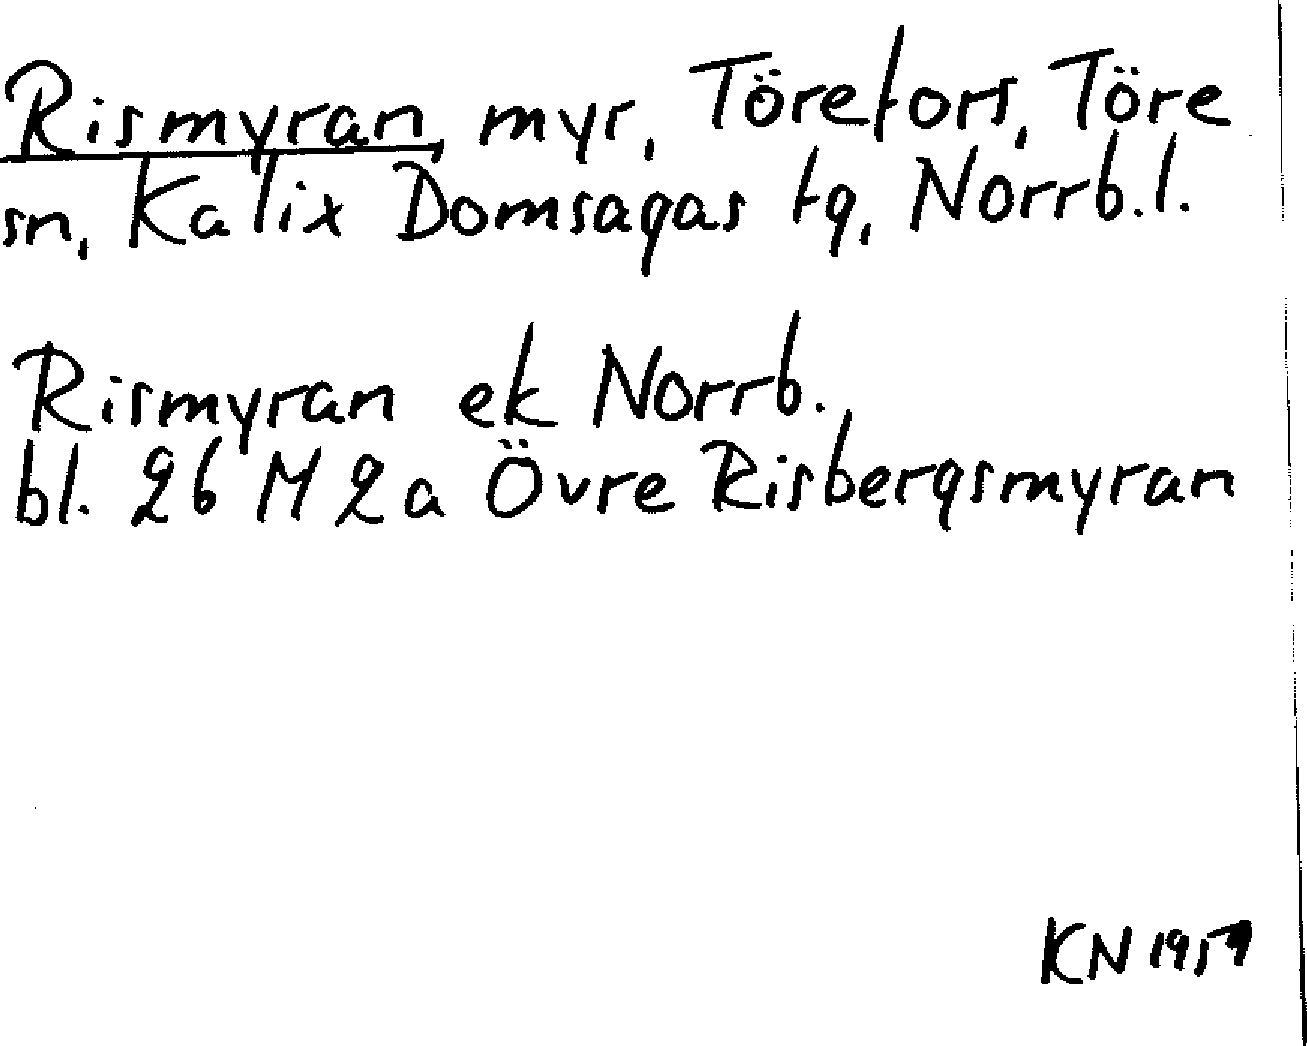 Rismyran, myr, Törefors, Töre
sn, Kalix Domsagas tg, Norrb. l.
Rismyran ek Norrb.
bl. 26 M 2a Övre Risbergsmyran
KN